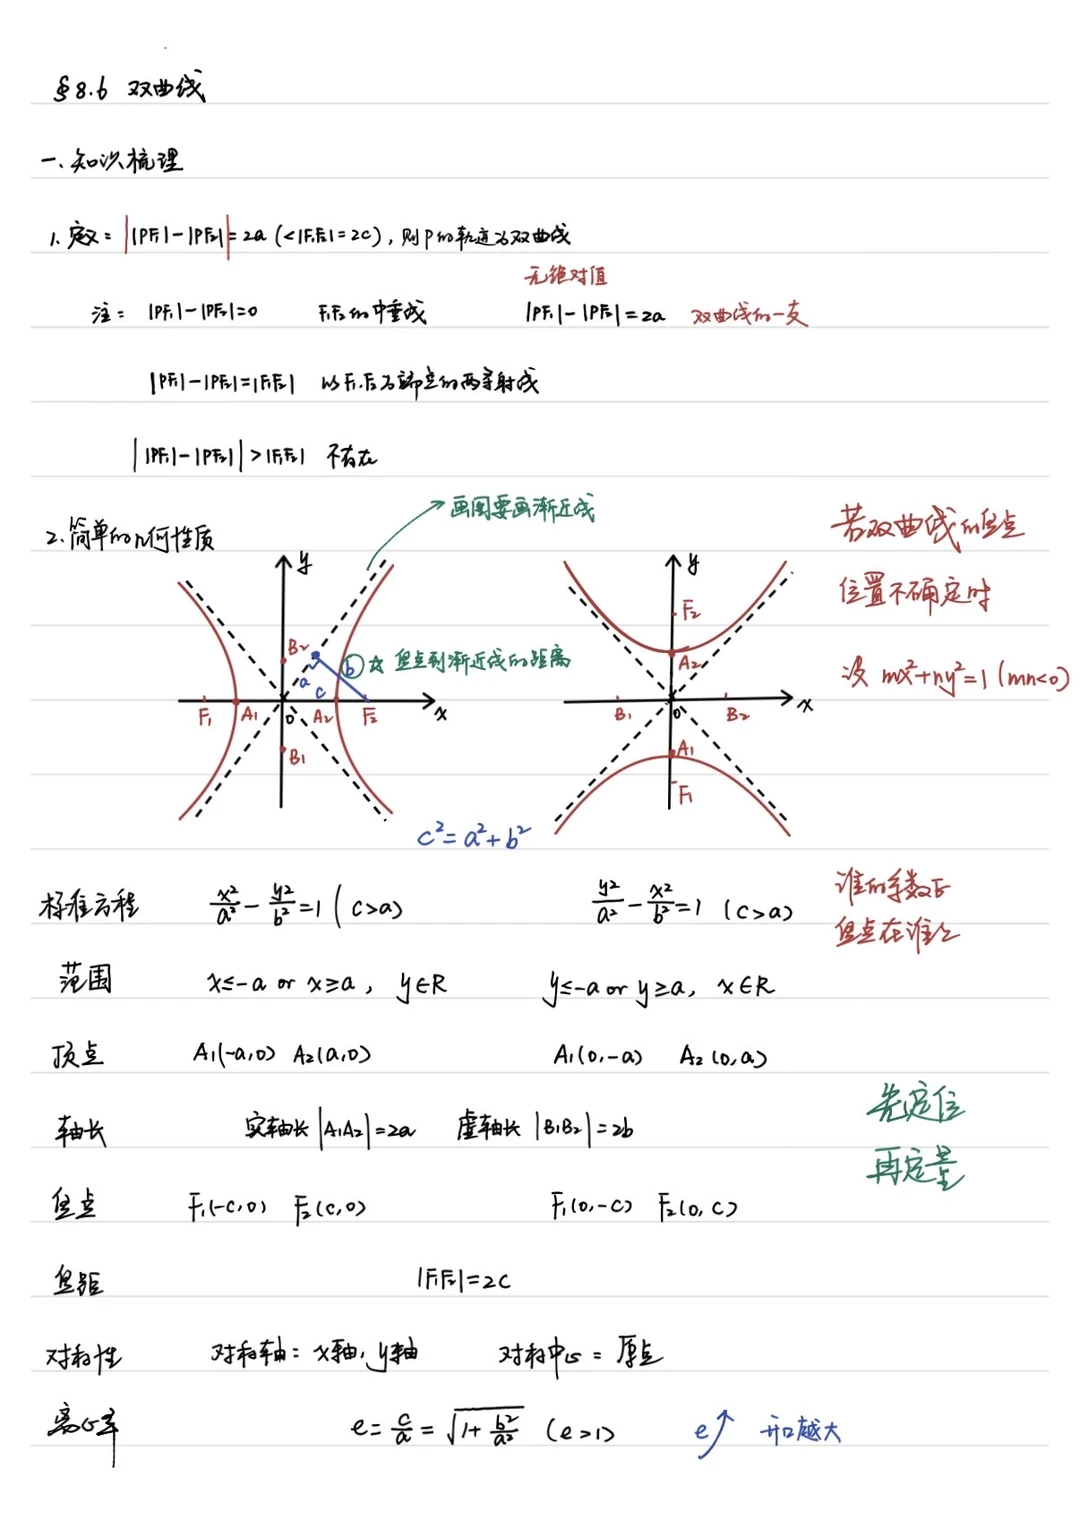 §8.6 双曲线
一、知识梳理
1. 定义：||PF₁|-|PF₂||=2a (<|F₁F₂|=2c)，则P的轨迹为双曲线
无绝对值
注：|PF₁|-|PF₂|=0 F₁F₂的中垂线 |PF₁|-|PF₂|=2a 双曲线的一支
|PF₁|-|PF₂|=|F₁F₂| 以F₁.F₂为端点的两条射线
||PF₁|-|PF₂||>|F₁F₂| 不存在
画图要画渐近线
2.简单的几何性质
若双曲线的焦点
位置不确定时
设 mx²+ny²=1 (mn<0)
y
B₂
a
b
☆ 焦点到渐近线的距离
c
F₁ A₁ O A₂ F₂ x
B₁
y
F₂
A₂
B₁ O B₂ x
A₁
F₁
c²=a²+b²
标准方程 x²/a² - y²/b² =1 (c>a) y²/a² - x²/b² =1 (c>a)
谁的系数正
焦点在谁上
范围 x≤-a or x≥a, y∈R y≤-a or y≥a, x∈R
顶点 A₁(-a,0) A₂(a,0) A₁(0,-a) A₂(0,a)
先定位
再定量
轴长 实轴长|A₁A₂|=2a 虚轴长|B₁B₂|=2b
焦点 F₁(-c,0) F₂(c,0) F₁(0,-c) F₂(0,c)
焦距 |F₁F₂|=2c
对称性 对称轴：x轴，y轴 对称中心：原点
离心率 e=c/a=√(1+b²/a²) (e>1) e↗ 开口越大